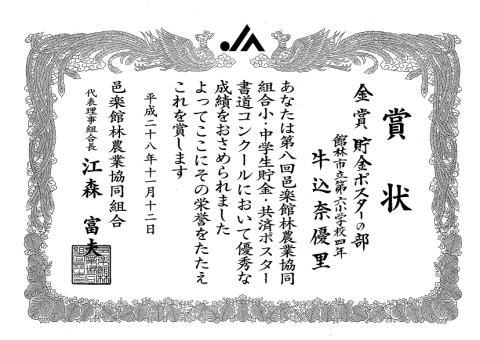 賞状
金賞 貯金ポスターの部
館林市立第六小学校四年
牛込奈優里
あなたは第八回邑楽館林農業協同
組合小・中学生貯金・共済ポスター
書道コンクールにおいて優秀な
成績をおさめられました
よってここにその栄誉をたたえ
これを賞します
平成二十八年十一月十二日
邑楽館林農業協同組合
代表理事組合長 江森富夫